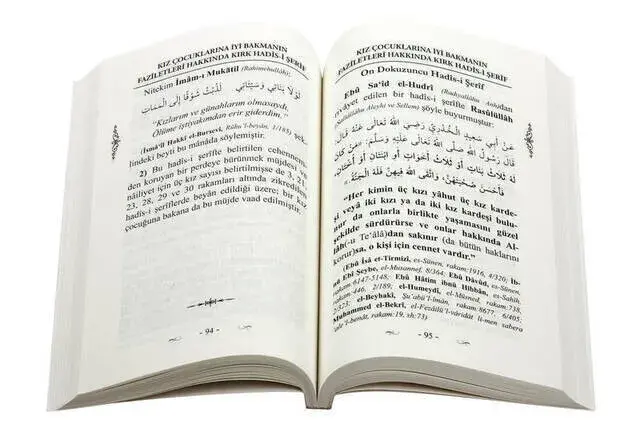 KIZ ÇOCUKLARINA İYİ BAKMANIN
FAZİLETLERİ HAKKINDA KIRK HADİS-İ ŞERİF
Nitekim İmâm-ı Mukâtil (Rahimehullâh):
لَوْلَا بَنَاتِي وَسَيِّئَاتِي لَذُبْتُ شَوْقًا إِلَى الْمَمَاتِ
“Kızlarım ve günahlarım olmasaydı,
Ölüme iştiyakımdan erir giderdim.”
(İsmâ‘îl Hakkî el-Bursevî, Rûhu’l-beyân, 1/185) şek-
lindeki beyti bu mânâda söylemiştir.
2) Bu hadîs-i şerîfte belirtilen cehennem-
den koruyan bir perdeye bürünmek müjdesi
nâiliyet için üç kız sayısı belirtilmişse de 3, 21,
23, 28, 29 ve 30 rakamları altında zikredilen
hadîs-i şerîflerde beyân edildiği üzere; bir kız
çocuğuna bakana da bu müjde vaad edilmiştir.
- 94 -
KIZ ÇOCUKLARINA İYİ BAKMANIN
FAZİLETLERİ HAKKINDA KIRK HADİS-İ ŞERİF
On Dokuzuncu Hadîs-i Şerîf
Ebû Sa‘îd el-Hudrî (Radıyallâhu Anh)dan
rivâyet edilen bir hadîs-i şerîfte Rasûlüllâh
(Sallâllâhu Aleyhi ve Sellem) şöyle buyurmuştur:
عَنْ أَبِي سَعِيدٍ الْخُدْرِيِّ رَضِيَ اللهُ تَعَالَى عَنْهُ قَالَ
قَالَ رَسُولُ اللهِ صَلَّى اللهُ تَعَالَى عَلَيْهِ وَسَلَّمَ: «مَنْ كَانَ
لَهُ ثَلَاثُ بَنَاتٍ أَوْ ثَلَاثُ أَخَوَاتٍ أَوِ ابْنَتَانِ أَوْ أُخْتَانِ،
فَأَحْسَنَ صُحْبَتَهُنَّ، وَاتَّقَى اللهَ فِيهِنَّ فَلَهُ الْجَنَّةُ.»
“Her kimin üç kızı yâhut üç kız karde-
şi veyâ iki kızı ya da iki kız kardeşi bulu-
nur da onlarla birlikte yaşamasını güzel
şekilde sürdürürse ve onlar hakkında Al-
lâh(-u Te‘âlâ)dan sakınır (da bütün haklarını
korur)sa, o kişi için cennet vardır.”
(Ebû Îsâ et-Tirmizî, es-Sünen, rakam:1916, 4/320; İb-
nü Ebî Şeybe, el-Musannef, 8/364; Ebû Dâvûd, es-Sünen,
rakam:6147-5148; Ebû Hâtim ibnü Hibbân, es-Sahîh,
rakam:446, 2/189; el-Humeydî, el-Müsned, rakam:738,
2/323; el-Beyhakî, Şu‘abü’l-îmân, rakam:8677, 6/405;
Muhammed el-Bekrî, el-Fezâilü’l-vâridât li-men sabera
‘ale’l-benât, rakam:19, sh:73)
- 95 -